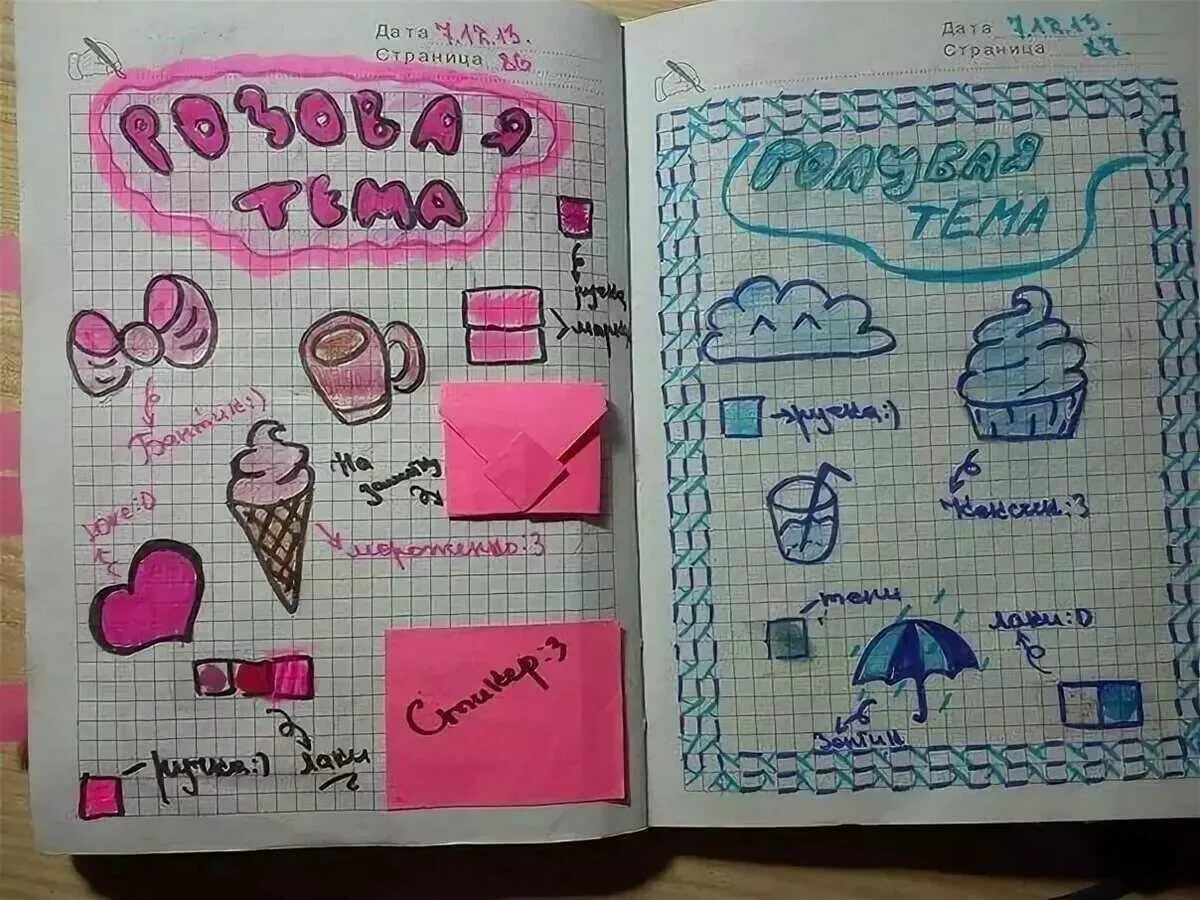 Дата 7.12.15.
Страница 86
РОЗОВАЯ
ТЕМА
ручка
Бантик:)
На
заметку
Love:D
мороженко:3
Стикер:3
ручка:)
лаки
Дата 7.12.15.
Страница 87.
ГОЛУБАЯ
ТЕМА
ручка:)
кексик:3
тени
лаки:D
Зонтик